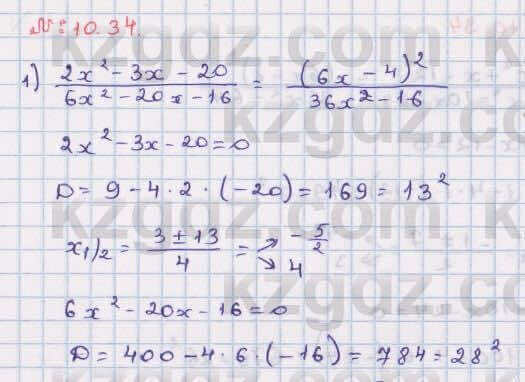 № 10.34.
1) (2x² - 3x - 20)/(6x² - 20x - 16) = (6x - 4)²/(36x² - 16)
2x² - 3x - 20 = 0
D = 9 - 4 · 2 · (-20) = 169 = 13²
x₁/₂ = (3 ± 13)/4 = ↗ -5/2 ↘ 4
6x² - 20x - 16 = 0
D = 400 - 4 · 6 · (-16) = 784 = 28²
kzgdz.com